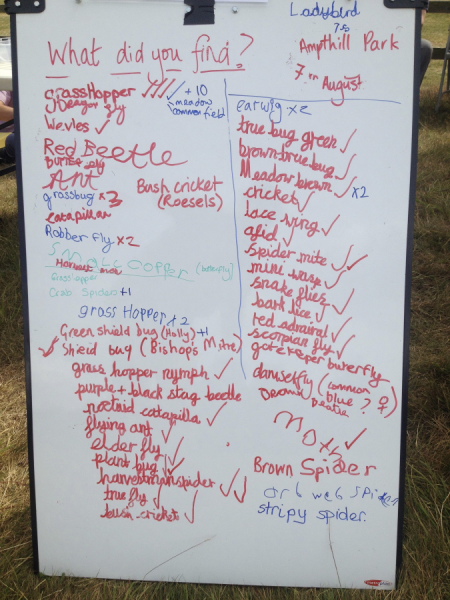 What did you find?
Ladybird
7.5
Ampthill Park
7th August
grassHopper +10
Dragon fly
meadow
common field
Wevles
Red Beetle
Ant
Bush cricket
(Roesels)
grassbug x3
catapillar
Robber fly x2
Small copper
Harvest man
Grasshopper
Crab Spider +1
grass Hopper x2
Green shield bug (Holly) +1
Shield bug (Bishop's Mitre)
grass hopper nymph
purple + black stag beetle
noctoid catapilla
flying ant
elder fly
plant bug
harvestman spider
true fly
bush cricket
earwig x2
true bug green
brown true bug
Meadow brown x2
cricket
lace wing
afid
spider mite
mini wasp
snake flies
bark lice
red admiral
scorpian fly
gatekeeper buterfly
damselfly (common blue ? ♀)
Moth
Brown Spider
orb web Spider
stripy spider.